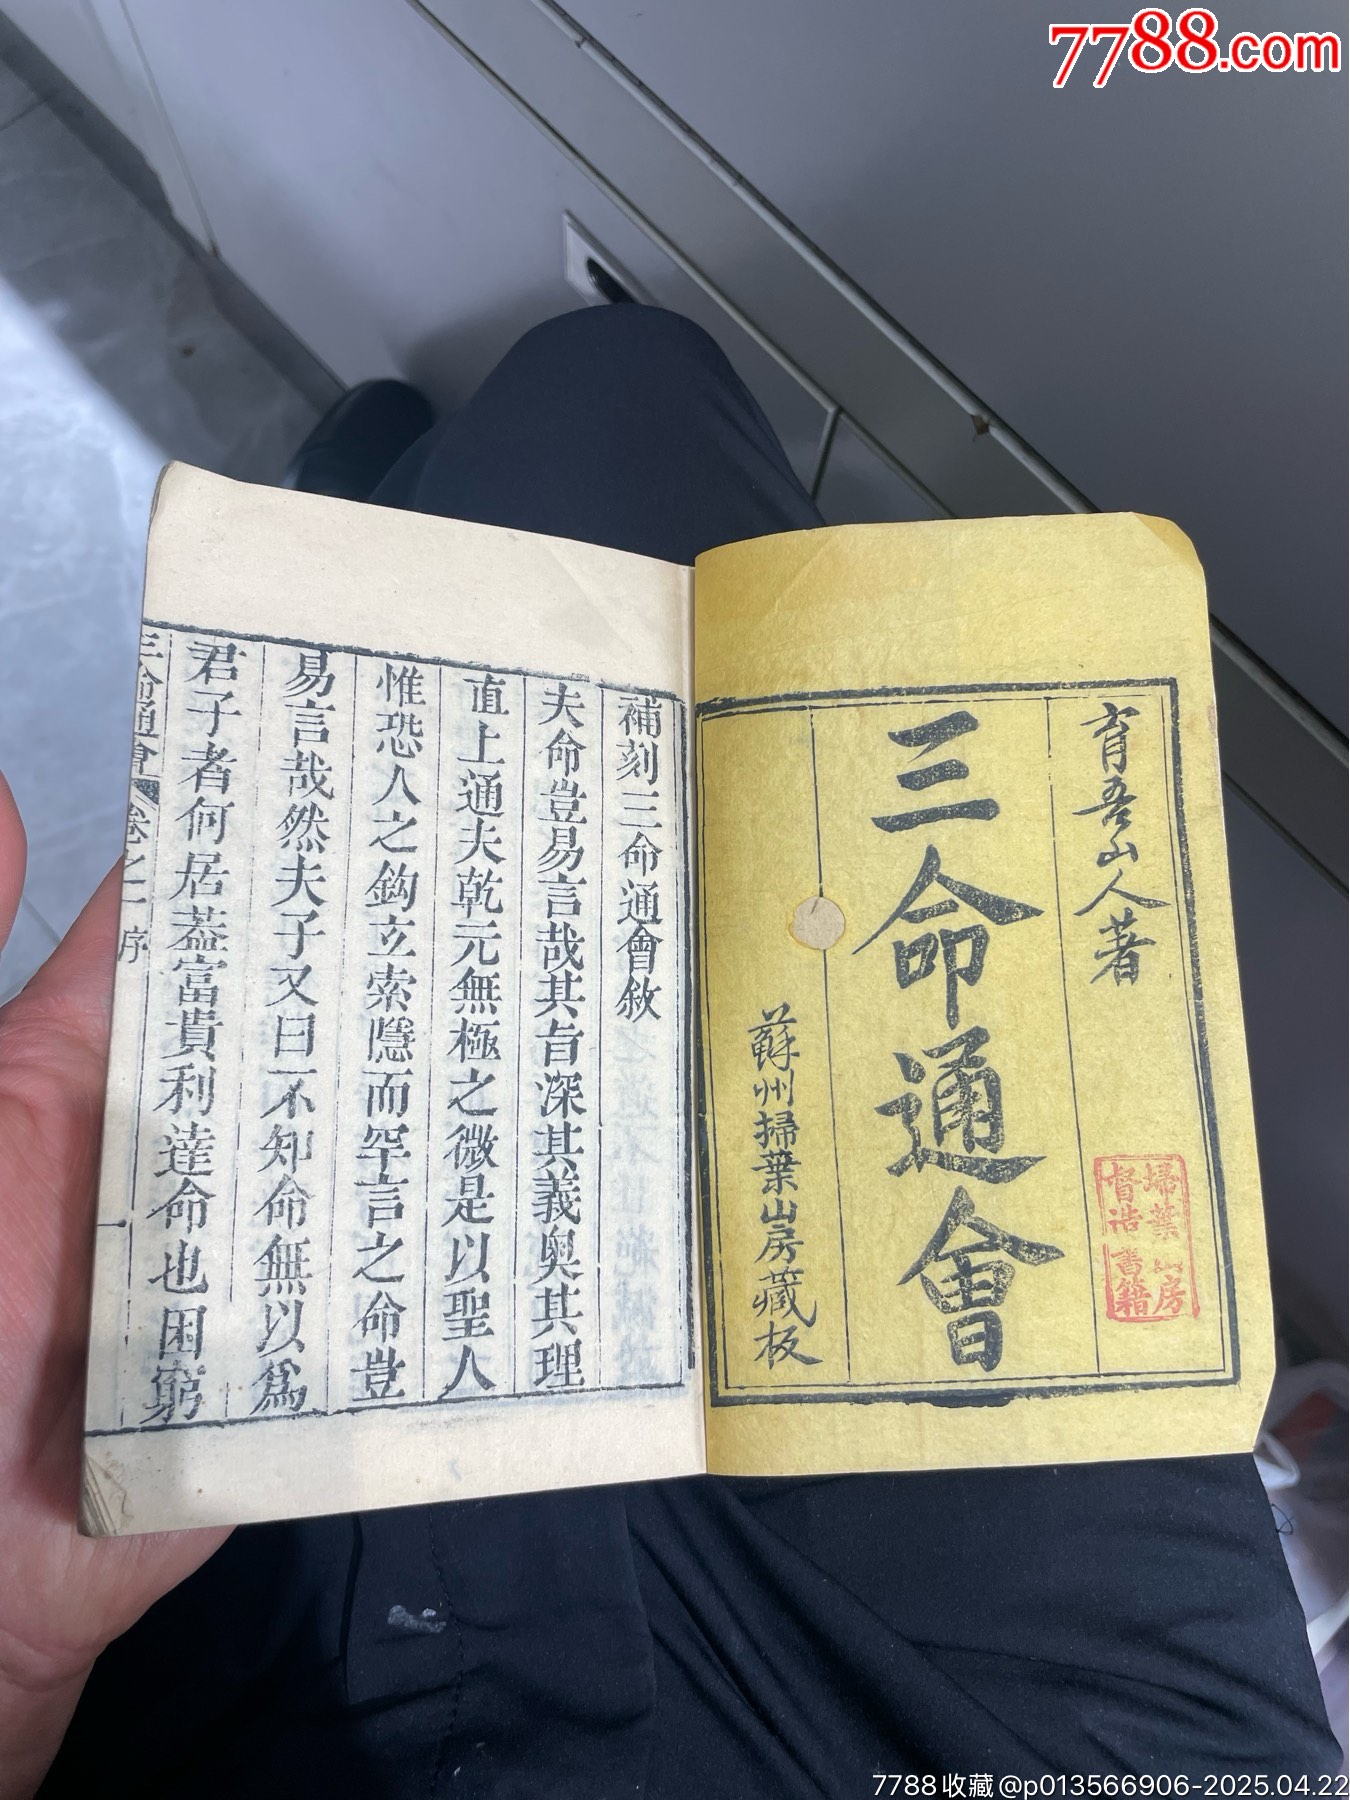 7788.com
育吾山人著
三命通會
蘇州掃葉山房藏板
掃葉山房
督造書籍
補刻三命通會敘
夫命豈易言哉其旨深其義奥其理
直上通夫乾元無極之微是以聖人
惟恐人之鈎立索隱而罕言之命豈
易言哉然夫子又曰不知命無以爲
君子者何居葢富貴利達命也困窮
三命通會 卷之一 序 一
7788收藏@p013566906-2025.04.22